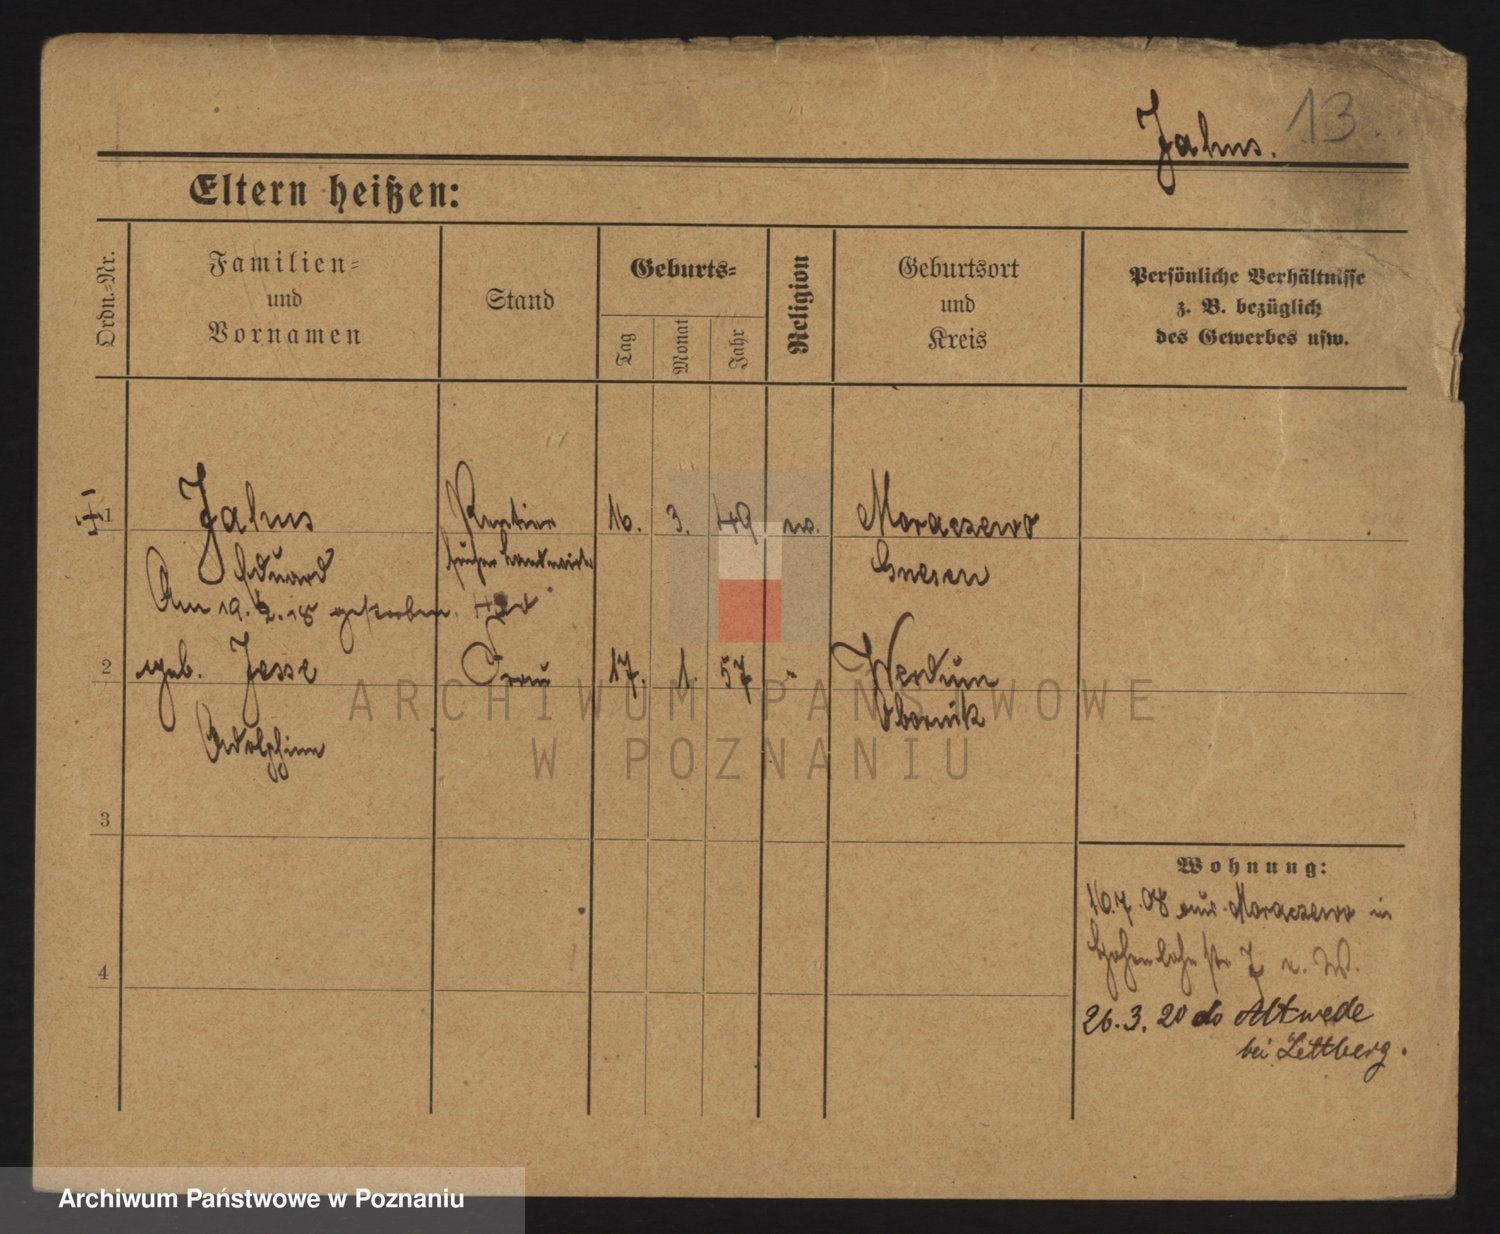 Jahns. 13
Eltern heißen:
Ordn.-Nr.
Familien-
und
Vornamen
Stand
Geburts-
Tag
Monat
Jahr
Religion
Geburtsort
und
Kreis
Persönliche Verhältnisse
z. B. bezüglich
des Gewerbes usw.
1 Jahns Rentier 16. 3. 49 ev. Moraczewo
Eduard früher Landwirt Gnesen
Am 19. 2. 18 gestorben.
2 geb. Jesse Frau 17. 1. 57 " Werdum
Adolphine Obornik
3
4
Wohnung:
16.7.08 aus Moraczewo in
Hohenlohestr 7 v. W.
26.3.20 do Altwede
bei Lettberg.
ARCHIWUM PAŃSTWOWE
W POZNANIU
Archiwum Państwowe w Poznaniu